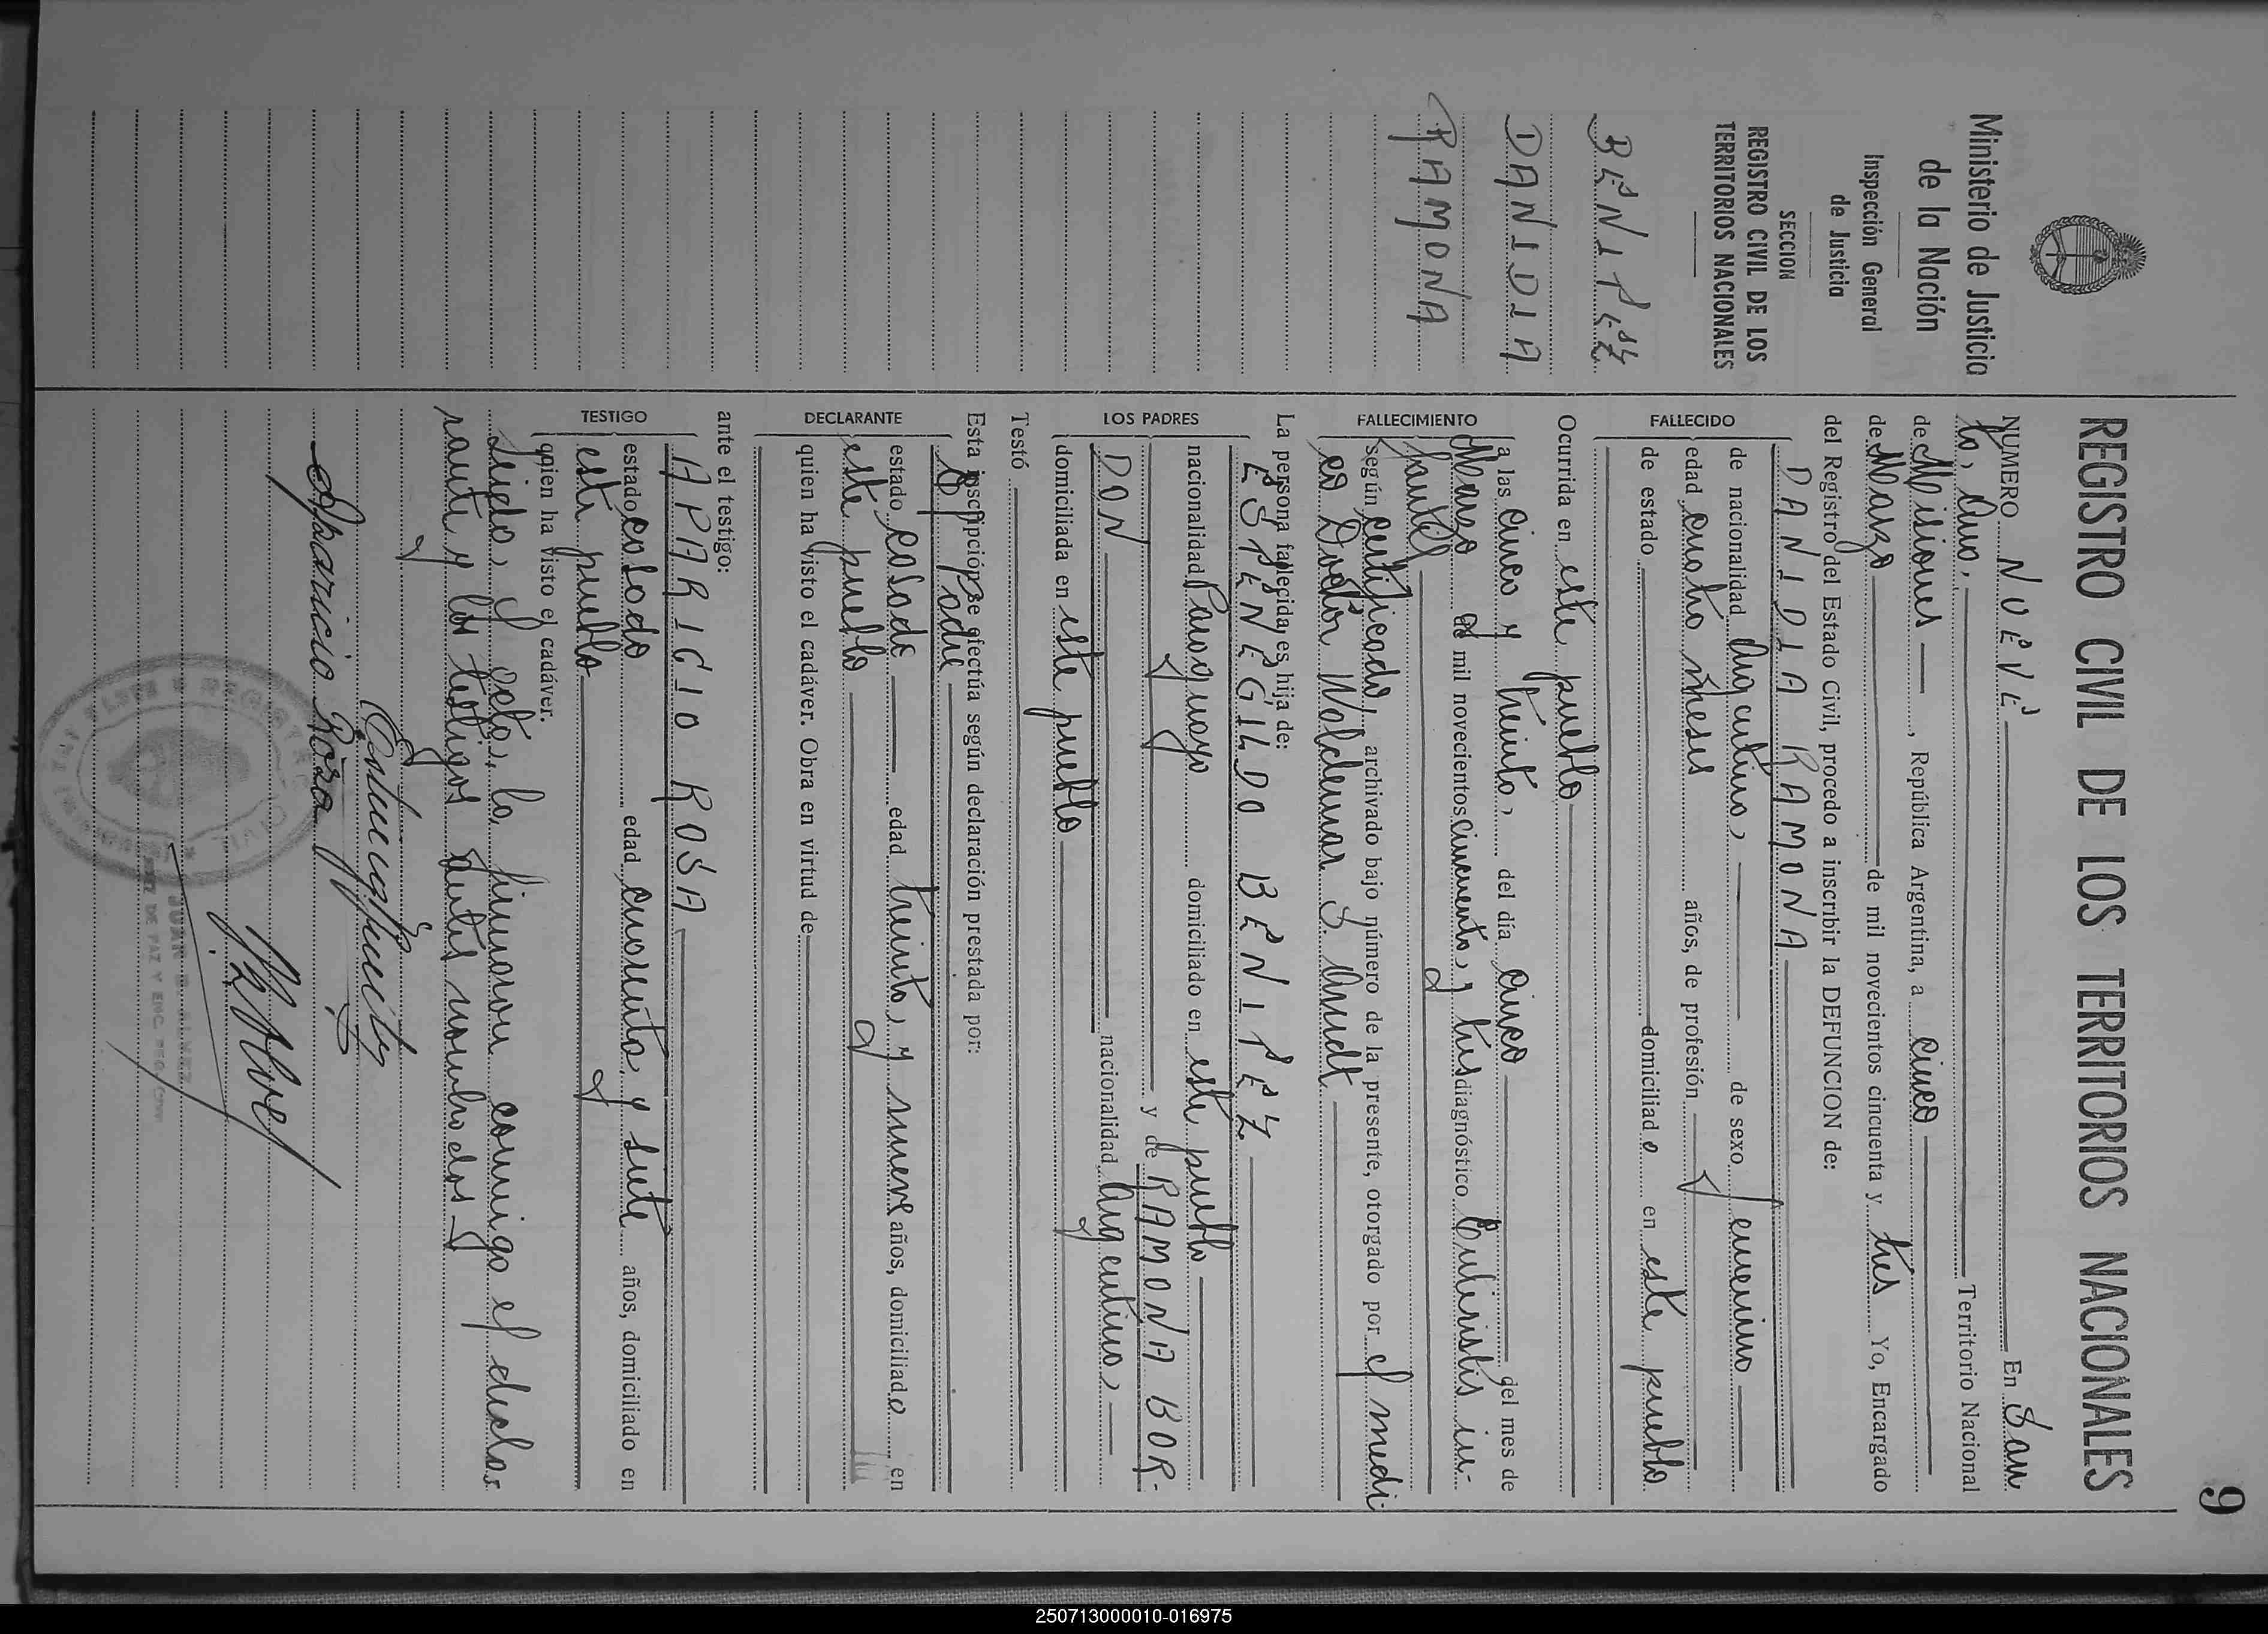 9
Ministerio de Justicia
de la Nación
Inspección General
de Justicia
SECCION
REGISTRO CIVIL DE LOS
TERRITORIOS NACIONALES
BENITEZ
DANIDIA
RAMONA
REGISTRO CIVIL DE LOS TERRITORIOS NACIONALES
NUMERO NUEVE En San
ta, Ana, Territorio Nacional
de Misiones, República Argentina, a cinco
de Marzo de mil novecientos cincuenta y tres Yo, Encargado
del Registro del Estado Civil, procedo a inscribir la DEFUNCION de:
FALLECIDO
DANIDIA RAMONA
de nacionalidad Argentina, de sexo femenino
edad cuatro meses años, de profesión
de estado domiciliado en este pueblo
Ocurrida en este pueblo
FALLECIMIENTO
a las cinco y treinta, del día cinco del mes de
Marzo de mil novecientos cincuenta, y tres diagnóstico Enteristis in-
fantil
según certificado, archivado bajo número de la presente, otorgado por el medi
co Doctor Woldemar S. Arndt
La persona fallecida, es hija de:
LOS PADRES
ESTENEGILDO BENITEZ
nacionalidad Paraguayo domiciliado en este pueblo
y de RAMONA BOR-
DON nacionalidad Argentina,
domiciliada en este pueblo
Testó
Esta inscripción se efectúa según declaración prestada por:
DECLARANTE
El Padre
estado casado edad treinta, y nueve años, domiciliado en
este pueblo
quien ha visto el cadáver. Obra en virtud de
ante el testigo:
TESTIGO
APARICIO ROSA
estado casado edad cuarenta, y siete años, domiciliado en
este pueblo
quien ha visto el cadáver.
Leida, el acta, la firmaron conmigo el decla-
rante y los testigos antes nombrados
Aparicio Rosa
REGISTRO CIVIL
JUAN B. ALVEZ
JUEZ DE PAZ Y ENC. REG. CIVIL
250713000010-016975